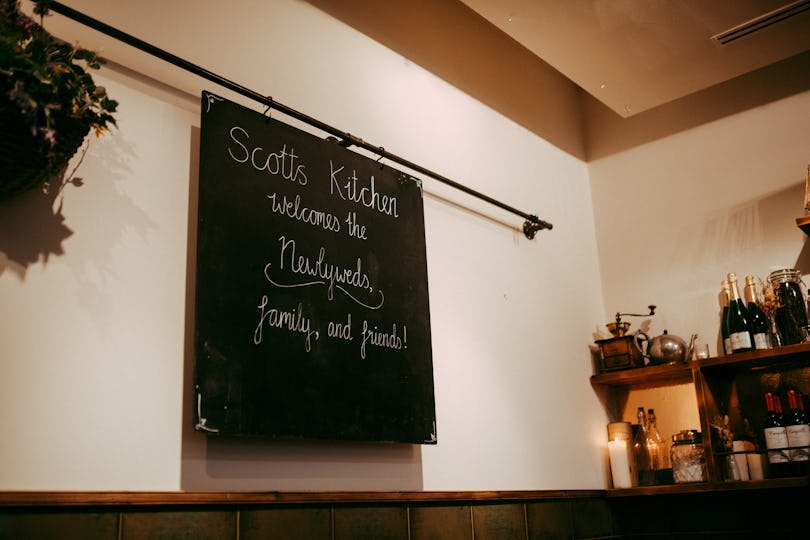 Scotts Kitchen
welcomes the
Newlyweds,
family, and friends!